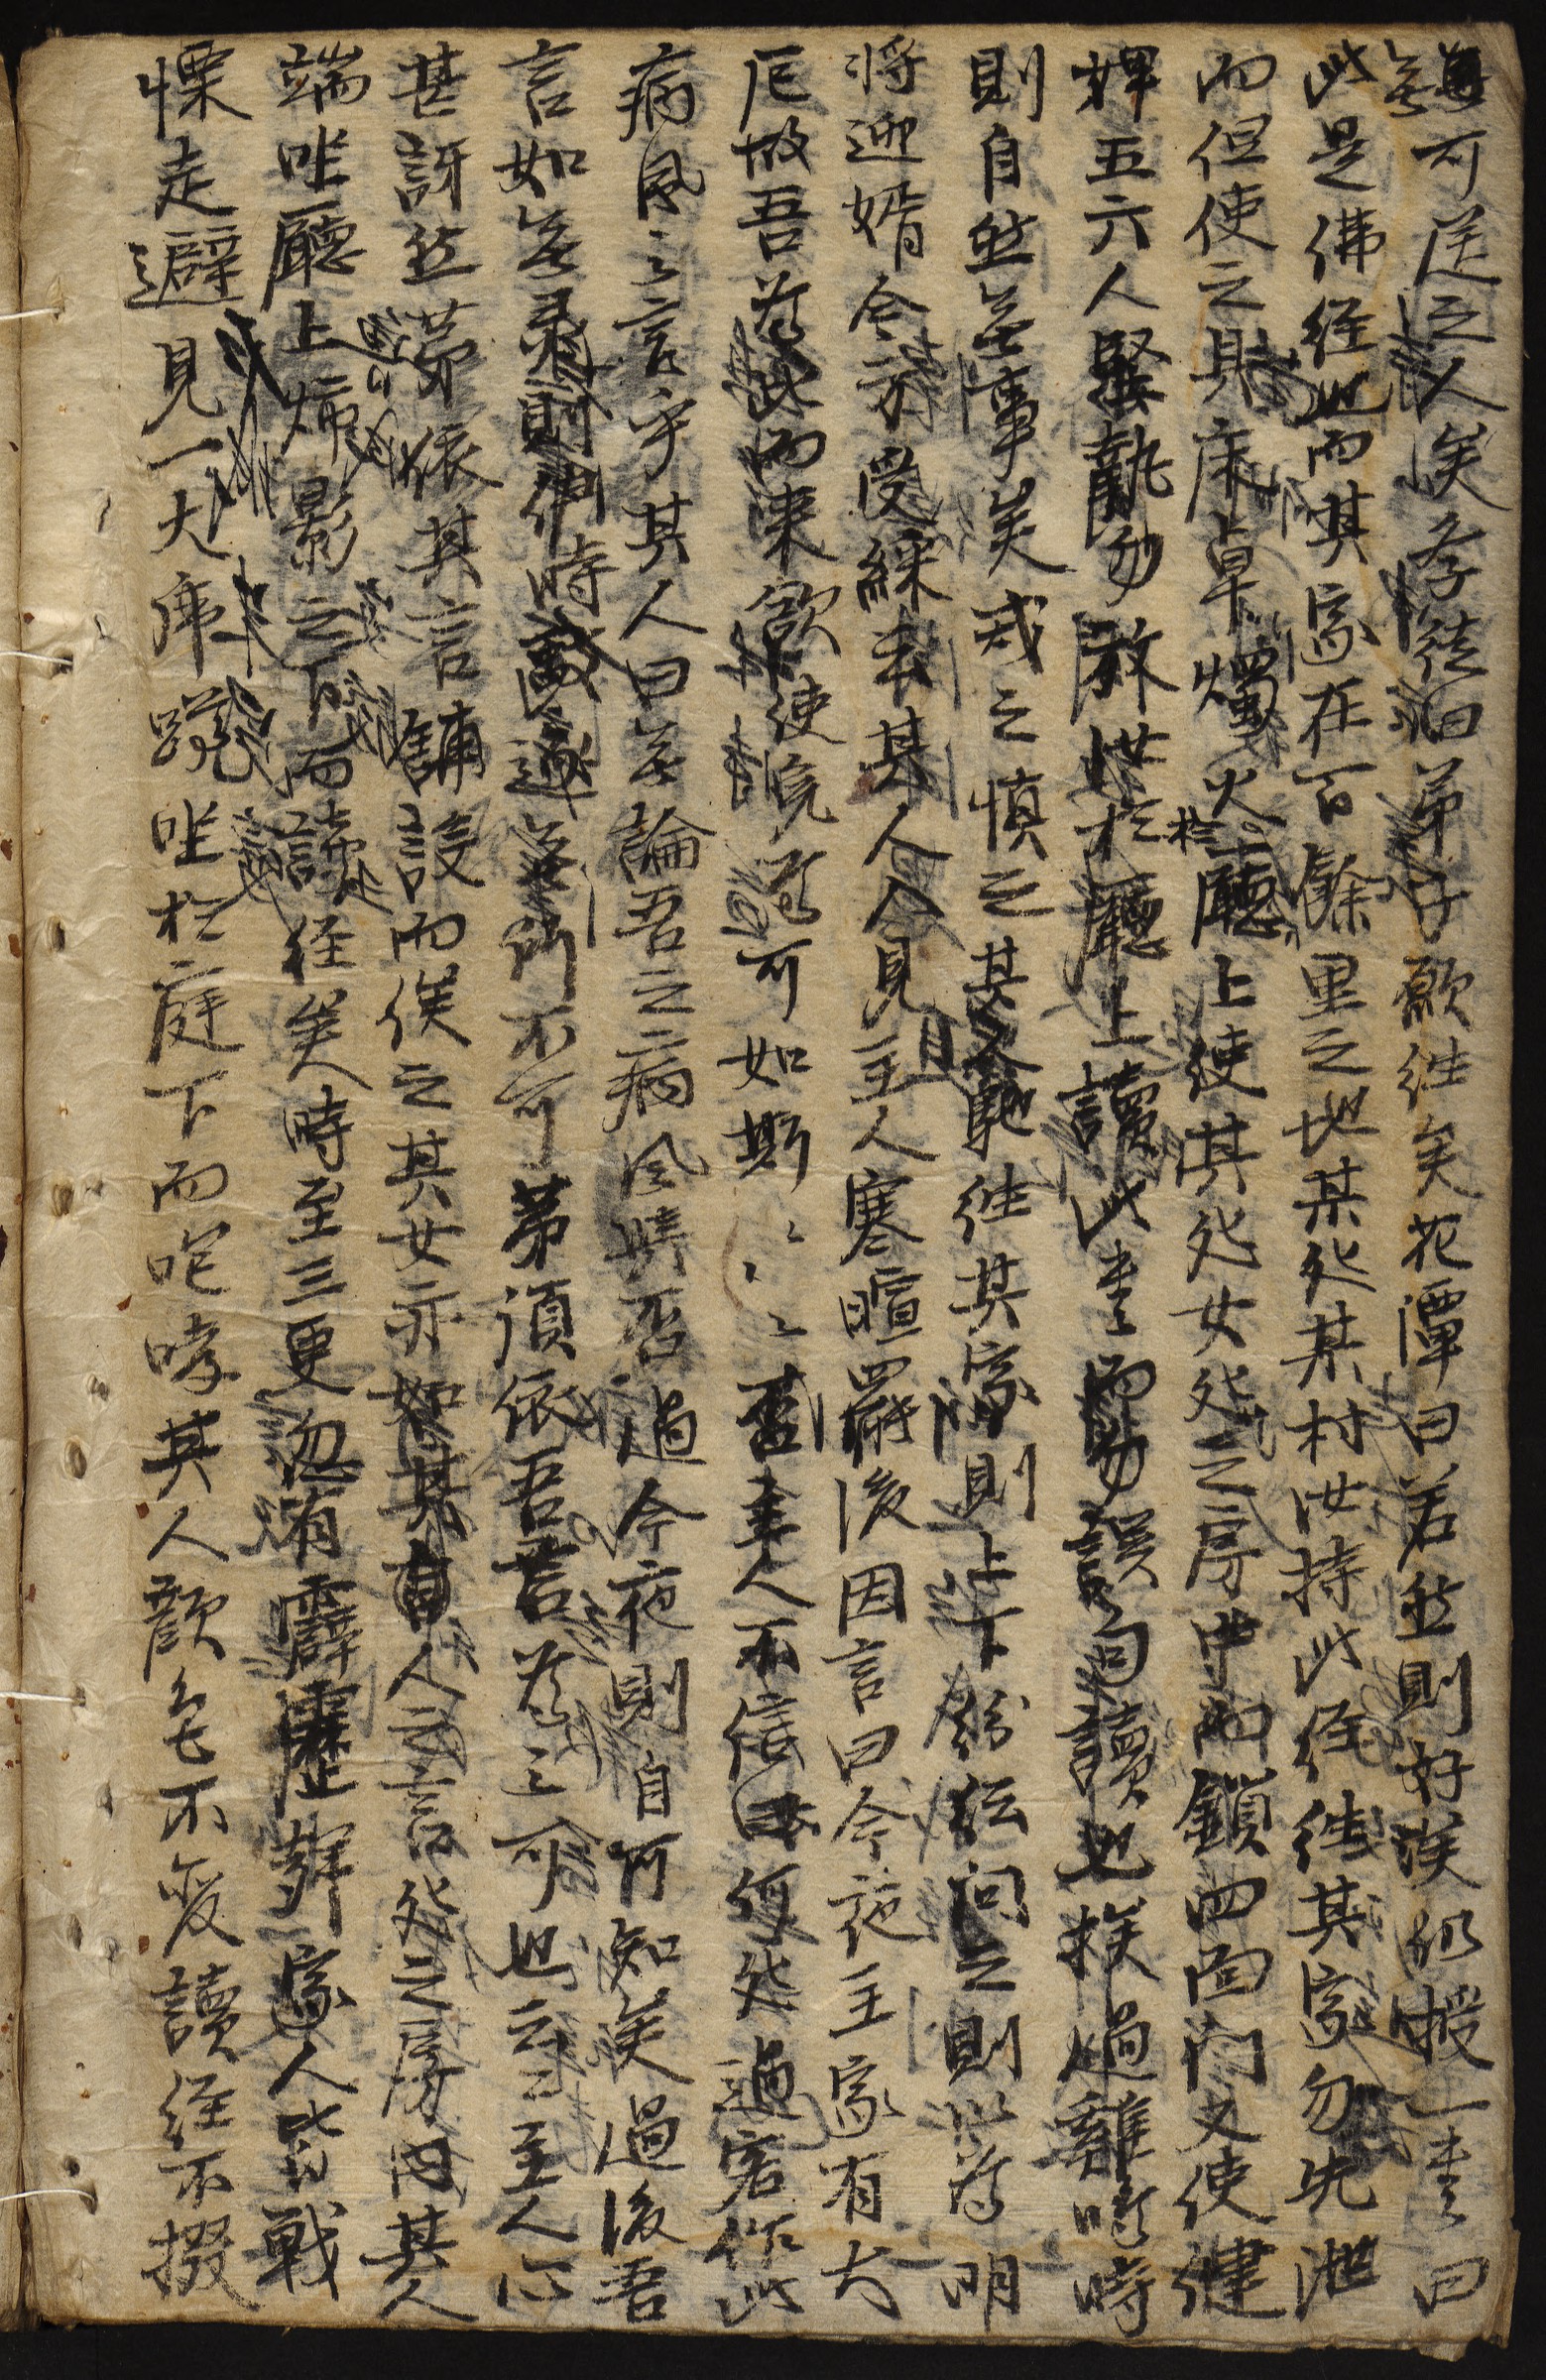 無可送之人矣有一弟子願往矣花潭曰若然則好矣仍授一書曰
此是佛經也而其家在百餘里之地某處某村汝持此經往其家勿先泄
而但使之具床卓燭火於廳上使其處女處之房中而鎖四面門又使健
婢五六人堅執勿放其於廳上讀此書而勿誤句讀也挨過鷄鳴時
則自然無事矣戒之愼之其人馳往其家則上下紛紜問之則以爲明
將迎婿今方受綵云其人入見主人寒暄罷後因言曰今夜主家有大
厄故吾爲此而來欲使免焉可如斯々々主人不信曰何處過客作此
病風之言乎其人曰無論吾之病風與否過今夜則自可知矣過後吾
言如無靈則伊時毆逐無所不可第須依吾言爲之可也云主人心
甚訝然第依其言鋪設而俟之其女亦如其人之言處之房內其人
端坐廳上燭影之下而讀經矣時至三更忽有霹靂聲家人皆戰
慄走避見一大虎蹲坐於庭下而咆哮其人顔色不變讀經不掇